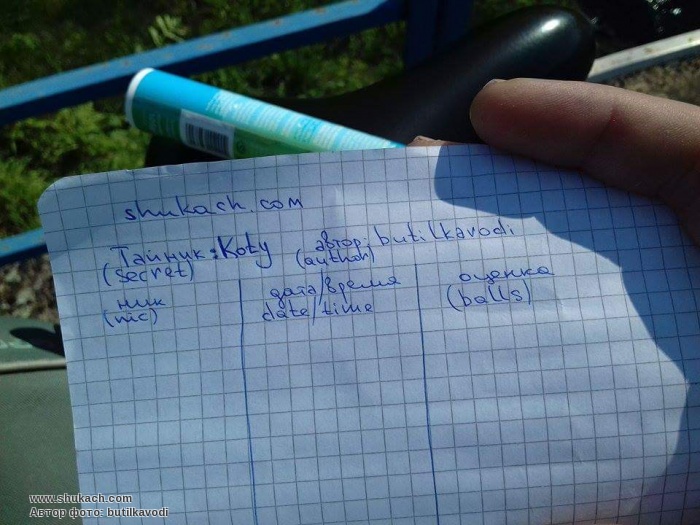 shukach.com
Тайник: Koty
(secret)
автор butilkavodi
(author)
ник
(nic)
дата/время
date/time
оценка
(balls)
www.shukach.com
Автор фото: butilkavodi